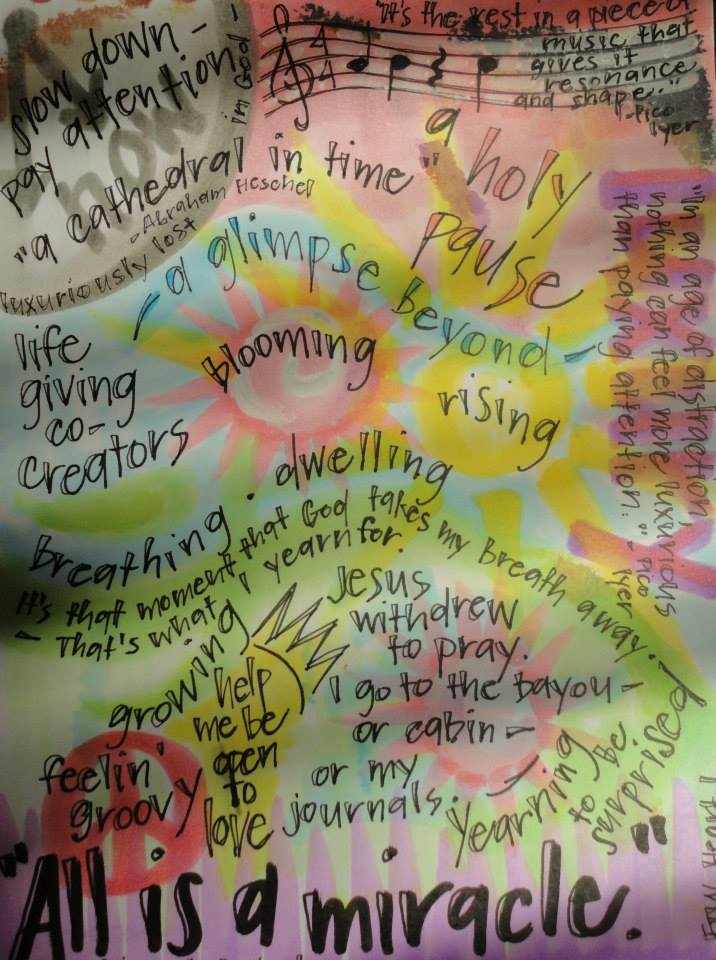 slow down -
pay attention
im God -
now
"a cathedral in time"
- Abraham Heschel
luxuriously lost
4
4
"It's the rest in a piece of
music that
gives it
resonance
and shape."
- Pico
Iyer
a holy
pause
"In an age of distraction,
nothing can feel more luxurious
than paying attention." - Pico
Iyer
- a glimpse beyond -
life
giving
co-
creators
blooming
rising
Breathing. dwelling
It's that moment that God takes my Breath away.
- That's what I yearn for.
growing
help
me be
open
to
love
Jesus
withdrew
to pray.
I go to the bayou -
or cabin -
or my
journals.
feelin'
groovy
Yearning
to be
surprised!
"All is a miracle."